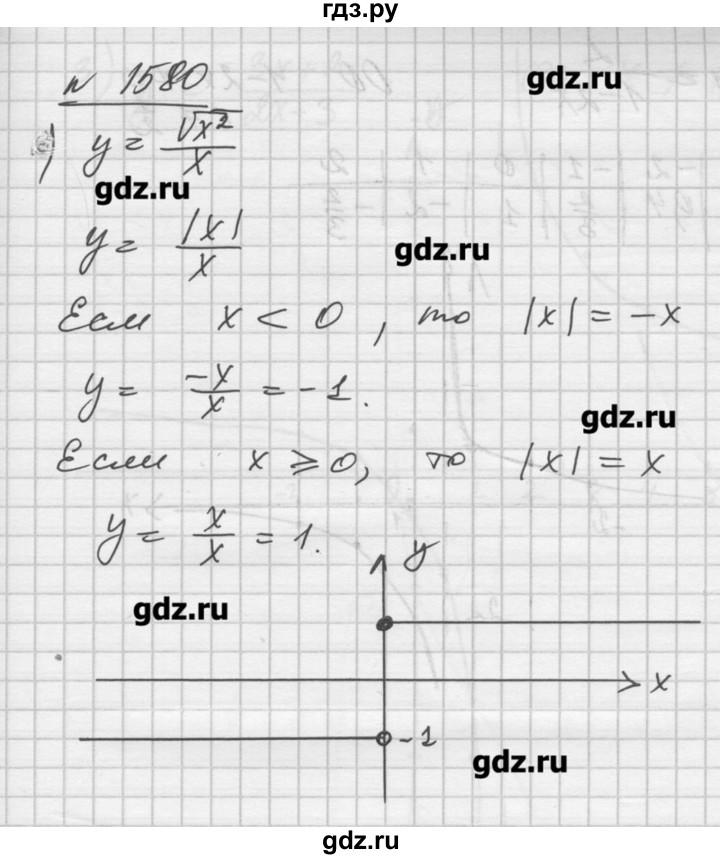 гдз.ру
№ 1580
gdz.ru
y = √x² / x
gdz.ru
y = |x| / x
gdz.ru
Если x < 0, то |x| = -x
y = -x / x = -1.
gdz.ru
Если x ⩾ 0, то |x| = x
y = x / x = 1.
y
gdz.ru
x
-1
gdz.ru
gdz.ru